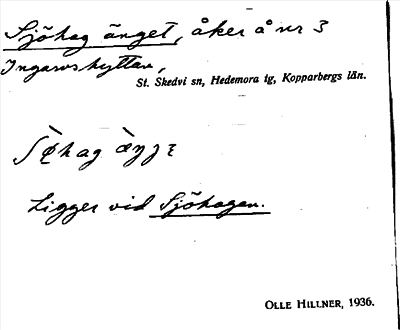 Sjöhag änget, åker å nr 3
Ingarvshyttan,
St. Skedvi sn, Hedemora tg, Kopparbergs län.
Ligger vid Sjöhagen.
OLLE HILLNER, 1936.